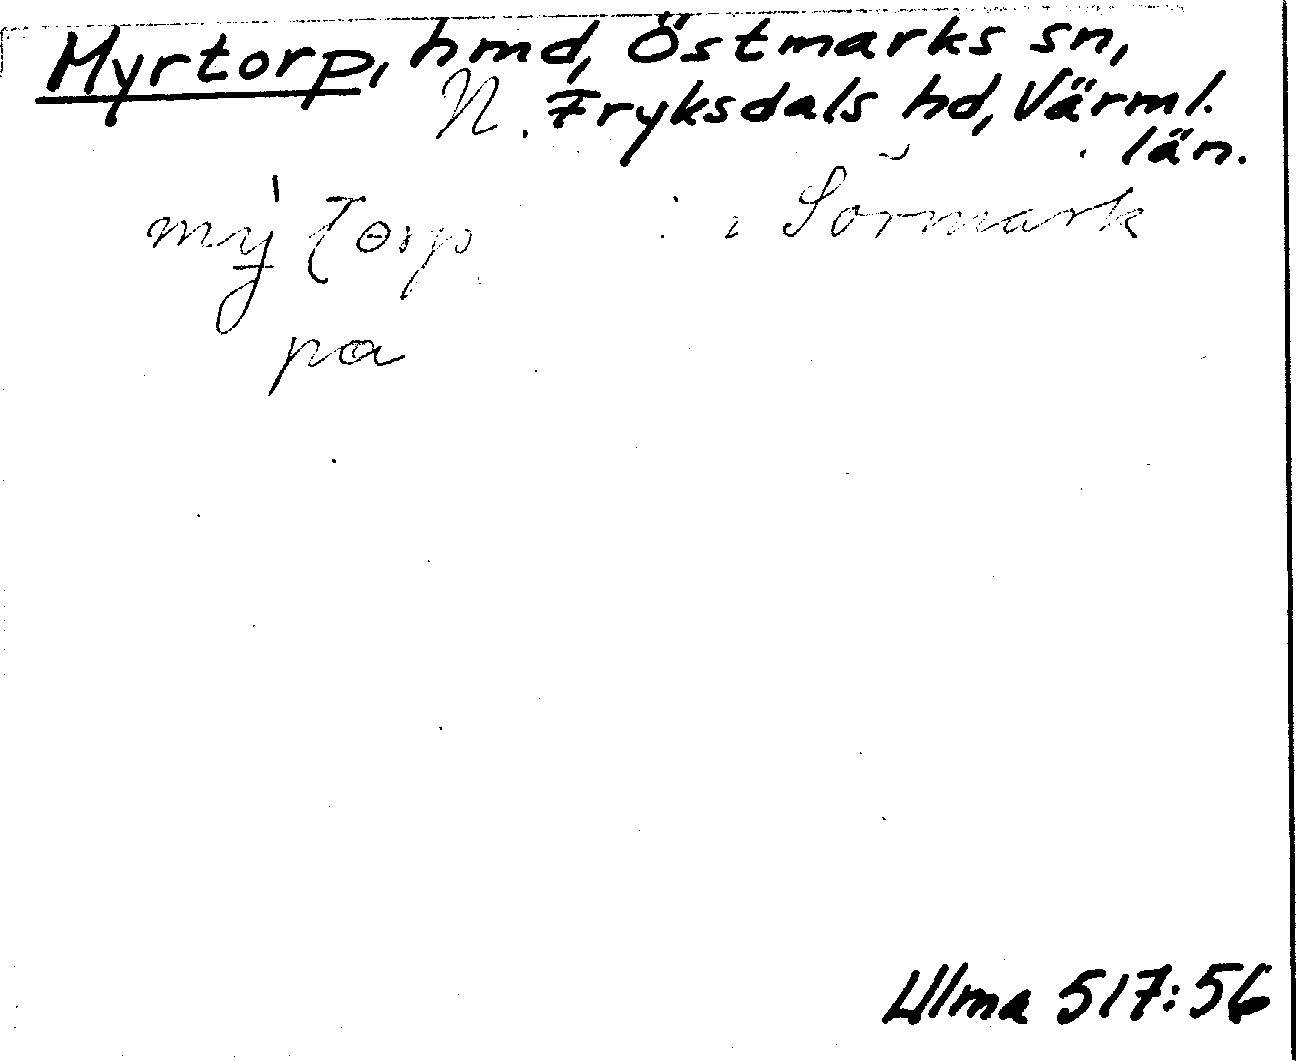 Myrtorp, hmd, Östmarks sn,
N. Fryksdals hd, Värml.
län.
i Sörmark
pa
Ulma 517:56